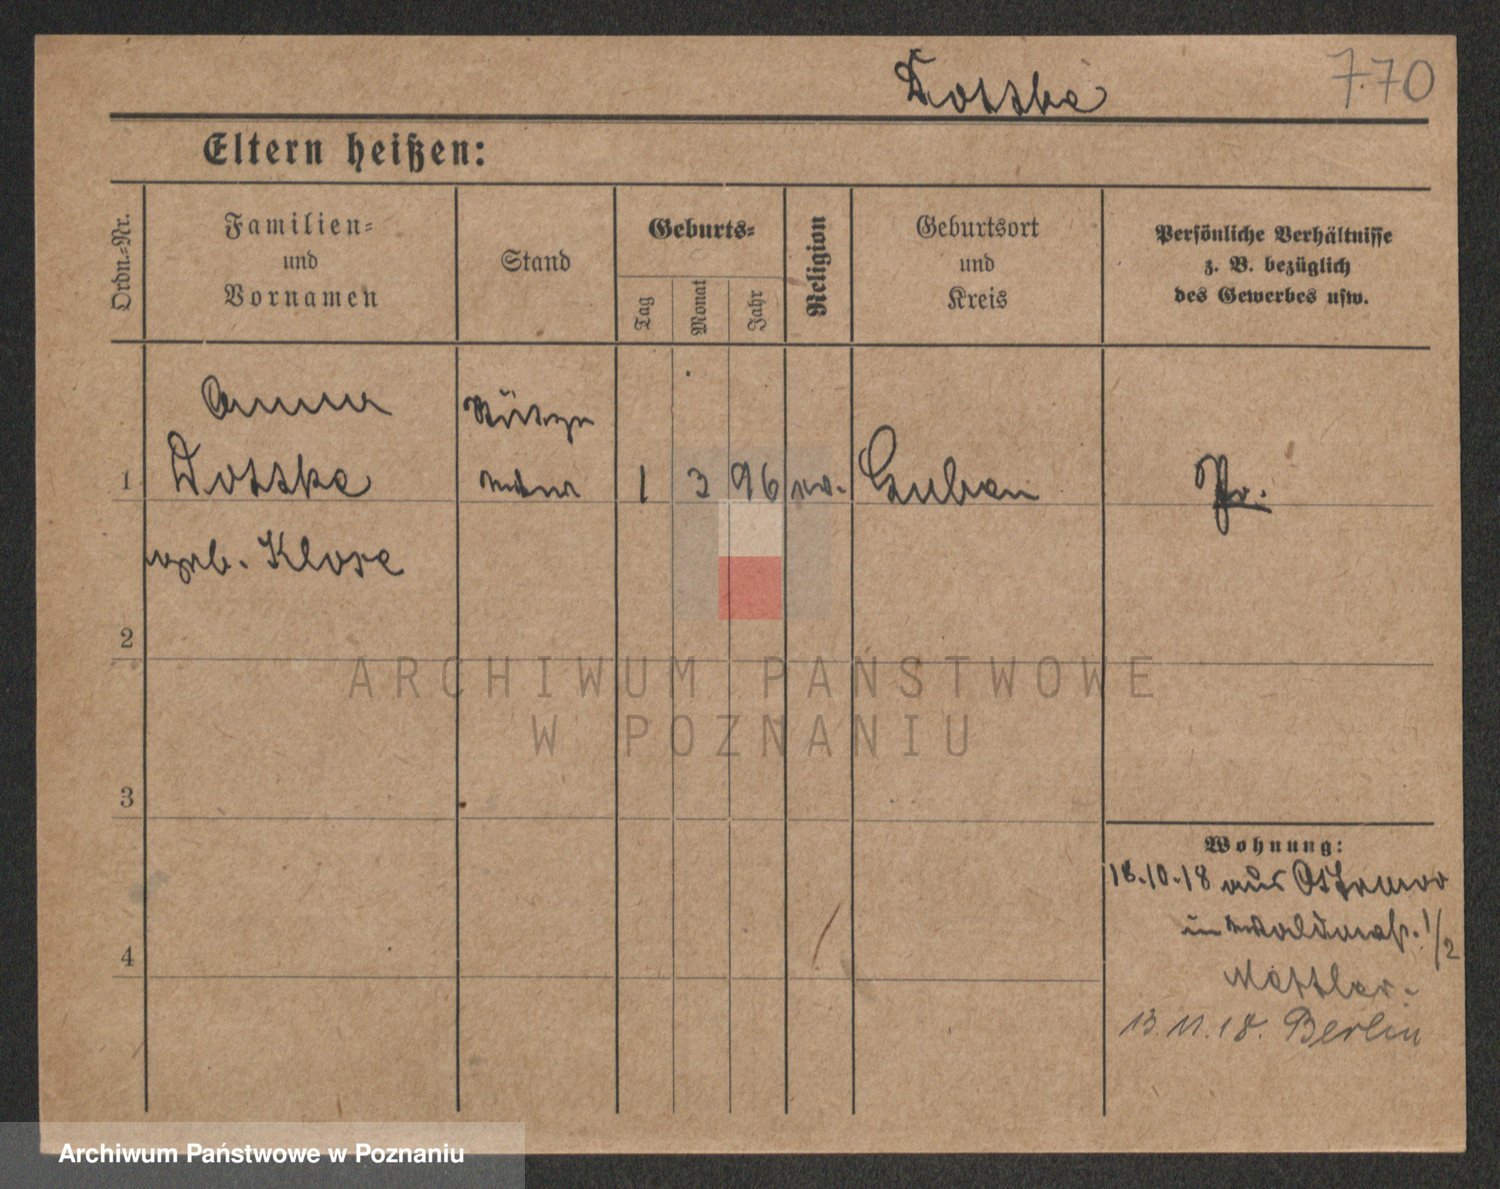 Dosske 7.70
Eltern heißen:
Ordn.-Nr.
Familien-
und
Vornamen
Stand
Geburts-
Tag
Monat
Jahr
Religion
Geburtsort
und
Kreis
Persönliche Verhältnisse
z. B. bezüglich
des Gewerbes usw.
Anna
1 Dosske 1 3 96 Guben Pr.
Klose
2
3
4
Wohnung:
18.10.18 aus
in 1/2
13.11.18. Berlin
ARCHIWUM PAŃSTWOWE
W POZNANIU
Archiwum Państwowe w Poznaniu